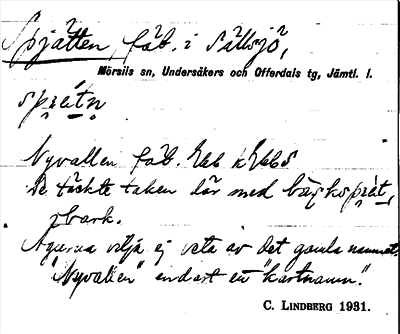 Spjätten, fäb. i Sällsjö,
Mörsils sn, Undersåkers och Offerdals tg, Jämtl. l.
Nyvallen fäb.
De täckte taken där med
bark.
Ägarna vilja ej veta av det gamla namnet.
"Nyvallen" endast ett "kartnamn".
C. LINDBERG 1931.